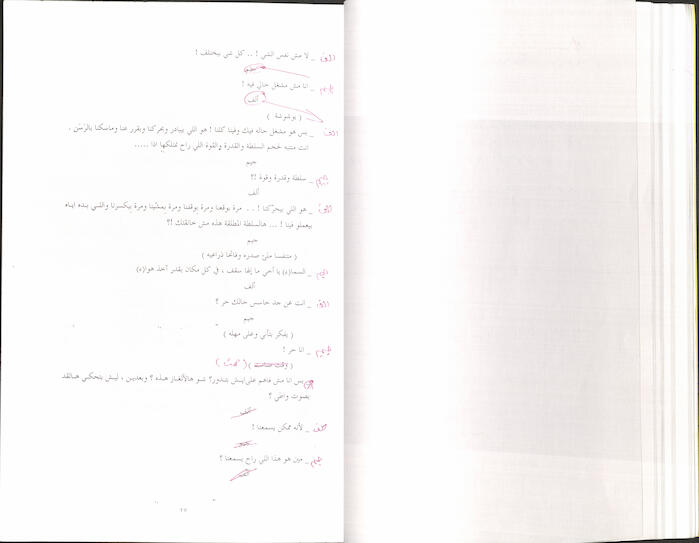 الف _ لا مش نفس الشي ! .. كل شي بيختلف !
جيم
جيم _ انا مش مشغل حالي فيه !
ألف
( بوشوشة )
الف _ بس هو مشغل حاله فيك وفينا كلنا ! هو اللي بيبادر وبحركنا وبقرر عنا وماسكنا بالرَسَن .
انت منتبه لحجم السلطة والقدرة والقوة اللي راح تمتلكها اذا .....
جيم
جيم _ سلطة وقدرة وقوة ؟!
ألف
الف _ هو اللي بيحرّكنا ! .. مرة بوقعنا ومرة بوقفنا ومرة بمشّينا ومرة بيكسرنا واللي بده اياه
بيعملو فينا ! ... هالسلطة المطلقة هذه مش خانقتك ؟!
جيم
( متنفسا ملئ صدره وفاتحا ذراعيه )
جيم _ السما(ء) يا أخي ما إلها سقف ، في كل مكان بقدر آخذ هوا(ء)
ألف
الف _ انت عن جد حاسس حالك حر ؟
جيم
( يفكر بتأني وعلى مهله )
جيم _ انا حر !
( وقت صامت ) ( صمت )
بس انا مش فاهم على ايش بتدور؟ شو هالألغاز هذه ؟ وبعدين ، ليش بتحكي هالقد
بصوت واطي ؟
ألف
الف _ لأنه ممكن يسمعنا !
جيم
جيم _ مين هو هذا اللي راح يسمعنا ؟
ألف